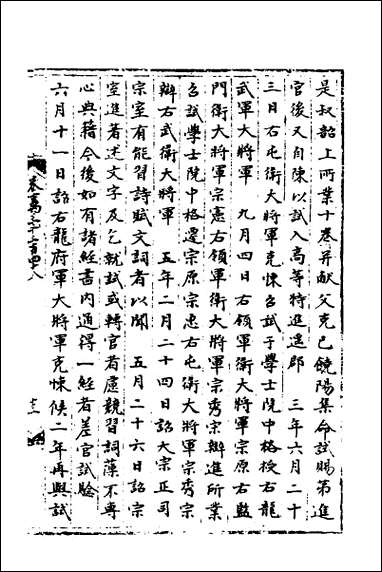 是叔韶上所業十卷并献父克己饒陽集命試賜第進
官後又自陳以試入高等特進遙郡　三年六月二十
三日右屯衛大將軍克悚召試于學士院中格授右龍
武軍大將軍　九月四日右領軍衛大將軍宗原右監
門衛大將軍宗憲右領軍衛大將軍宗秀宗辦進所業
召試學士院中格遷宗原宗忠右屯衛大將軍宗秀宗
辦右武衛大將軍　五年二月二十四日詔大宗正司
宗室有能習詩賦文詞者以聞　五月二十六日詔宗
室進著述文字及乞就試或轉官者慮競習詞藻不專
心典籍今後如有諸經書内通得一經者差官試驗
六月十一日詔右龍府軍大將軍克悚候二年再與試
卷萬二千一百四八
十二